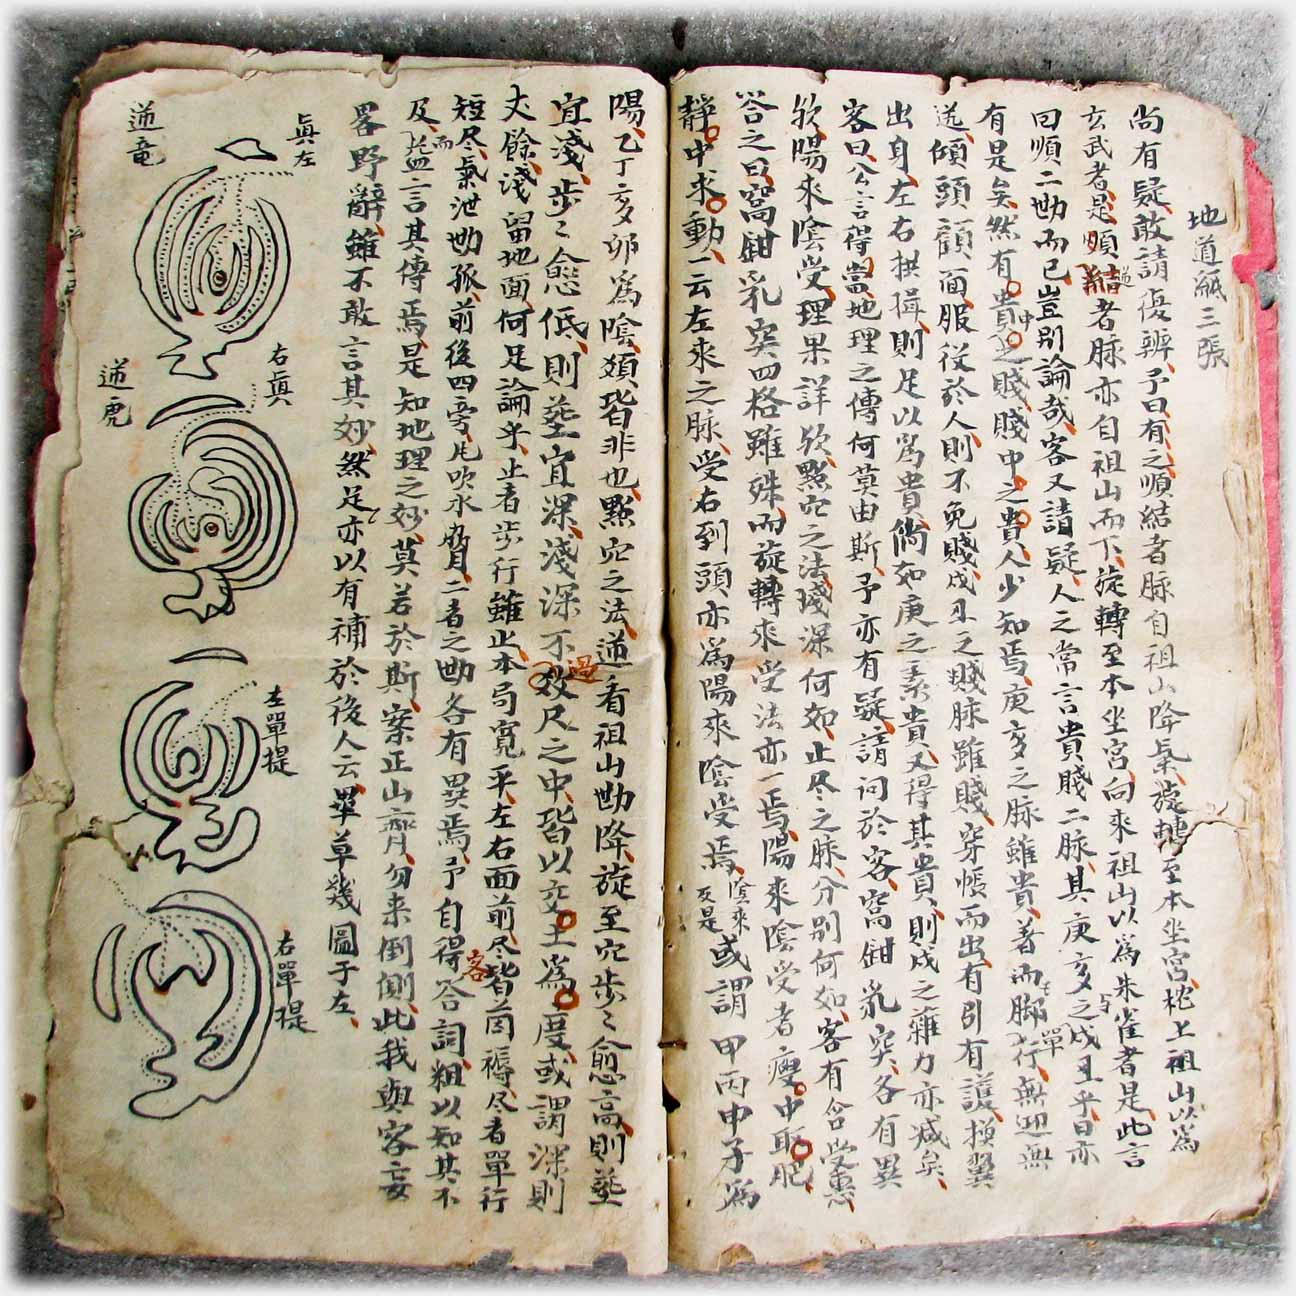 地道緘三張
尚有疑敢請復辨予曰有之順結者脉自祖山降氣旋轉至本坐宮枕上祖山以為
玄武者是順逆結者脉亦自祖山而下旋轉至本坐宮向來祖山以為朱雀者是此言
曰順二勘而已豈別論哉客又請疑人之常言貴賤二脉其庚亥之與戌丑乎曰亦
有是矣然有貴中之賤賤中之貴人少知焉庚亥之脉雖貴若而脚單行無迎無
送傾頭顧面服役於人則不免賤戌丑之賤脉雖賤穿帳而出有引有護換翼
出身左右拱揖則足以為貴倘如庚之素貴又得其貴則戌之蓰力亦减矣
客曰公言得當地理之傳何莫由斯予亦有疑請问於客窩鉗乳突各有異
欤陽來陰受理果詳欤點穴之法淺深何如止尽之脉分別何如客有含受惠
答之曰窩鉗乳突四格雖殊而旋轉來受法亦一焉陽來陰受者瘦中取肥
靜中求動一云左來之脉受右到頭亦為陽來陰受焉陰來反是或謂甲丙申子為
陽乙丁亥卯為陰類皆非也點穴之法逆看祖山勘降旋至穴步〻愈高則塟
宜淺步〻愈低則塟宜深淺深不過数尺之中皆以交土為度或謂深則
丈餘淺留地面何足論乎止者步行雖止本局寬平左右面前尽皆茵褥尽者單行
短尽氣泄勘孤前後四旁風吹水脅二者之勘各有異焉予自得客答詞粗以知其不
及而益言其傳焉是知地理之妙莫若於斯案正山齊勿来倒側此我與客妄
畧野辭雖不敢言其妙然足亦以有補於後人云畢草幾圖于左
真左
逆竜
右真
逆虎
左單提
右單提